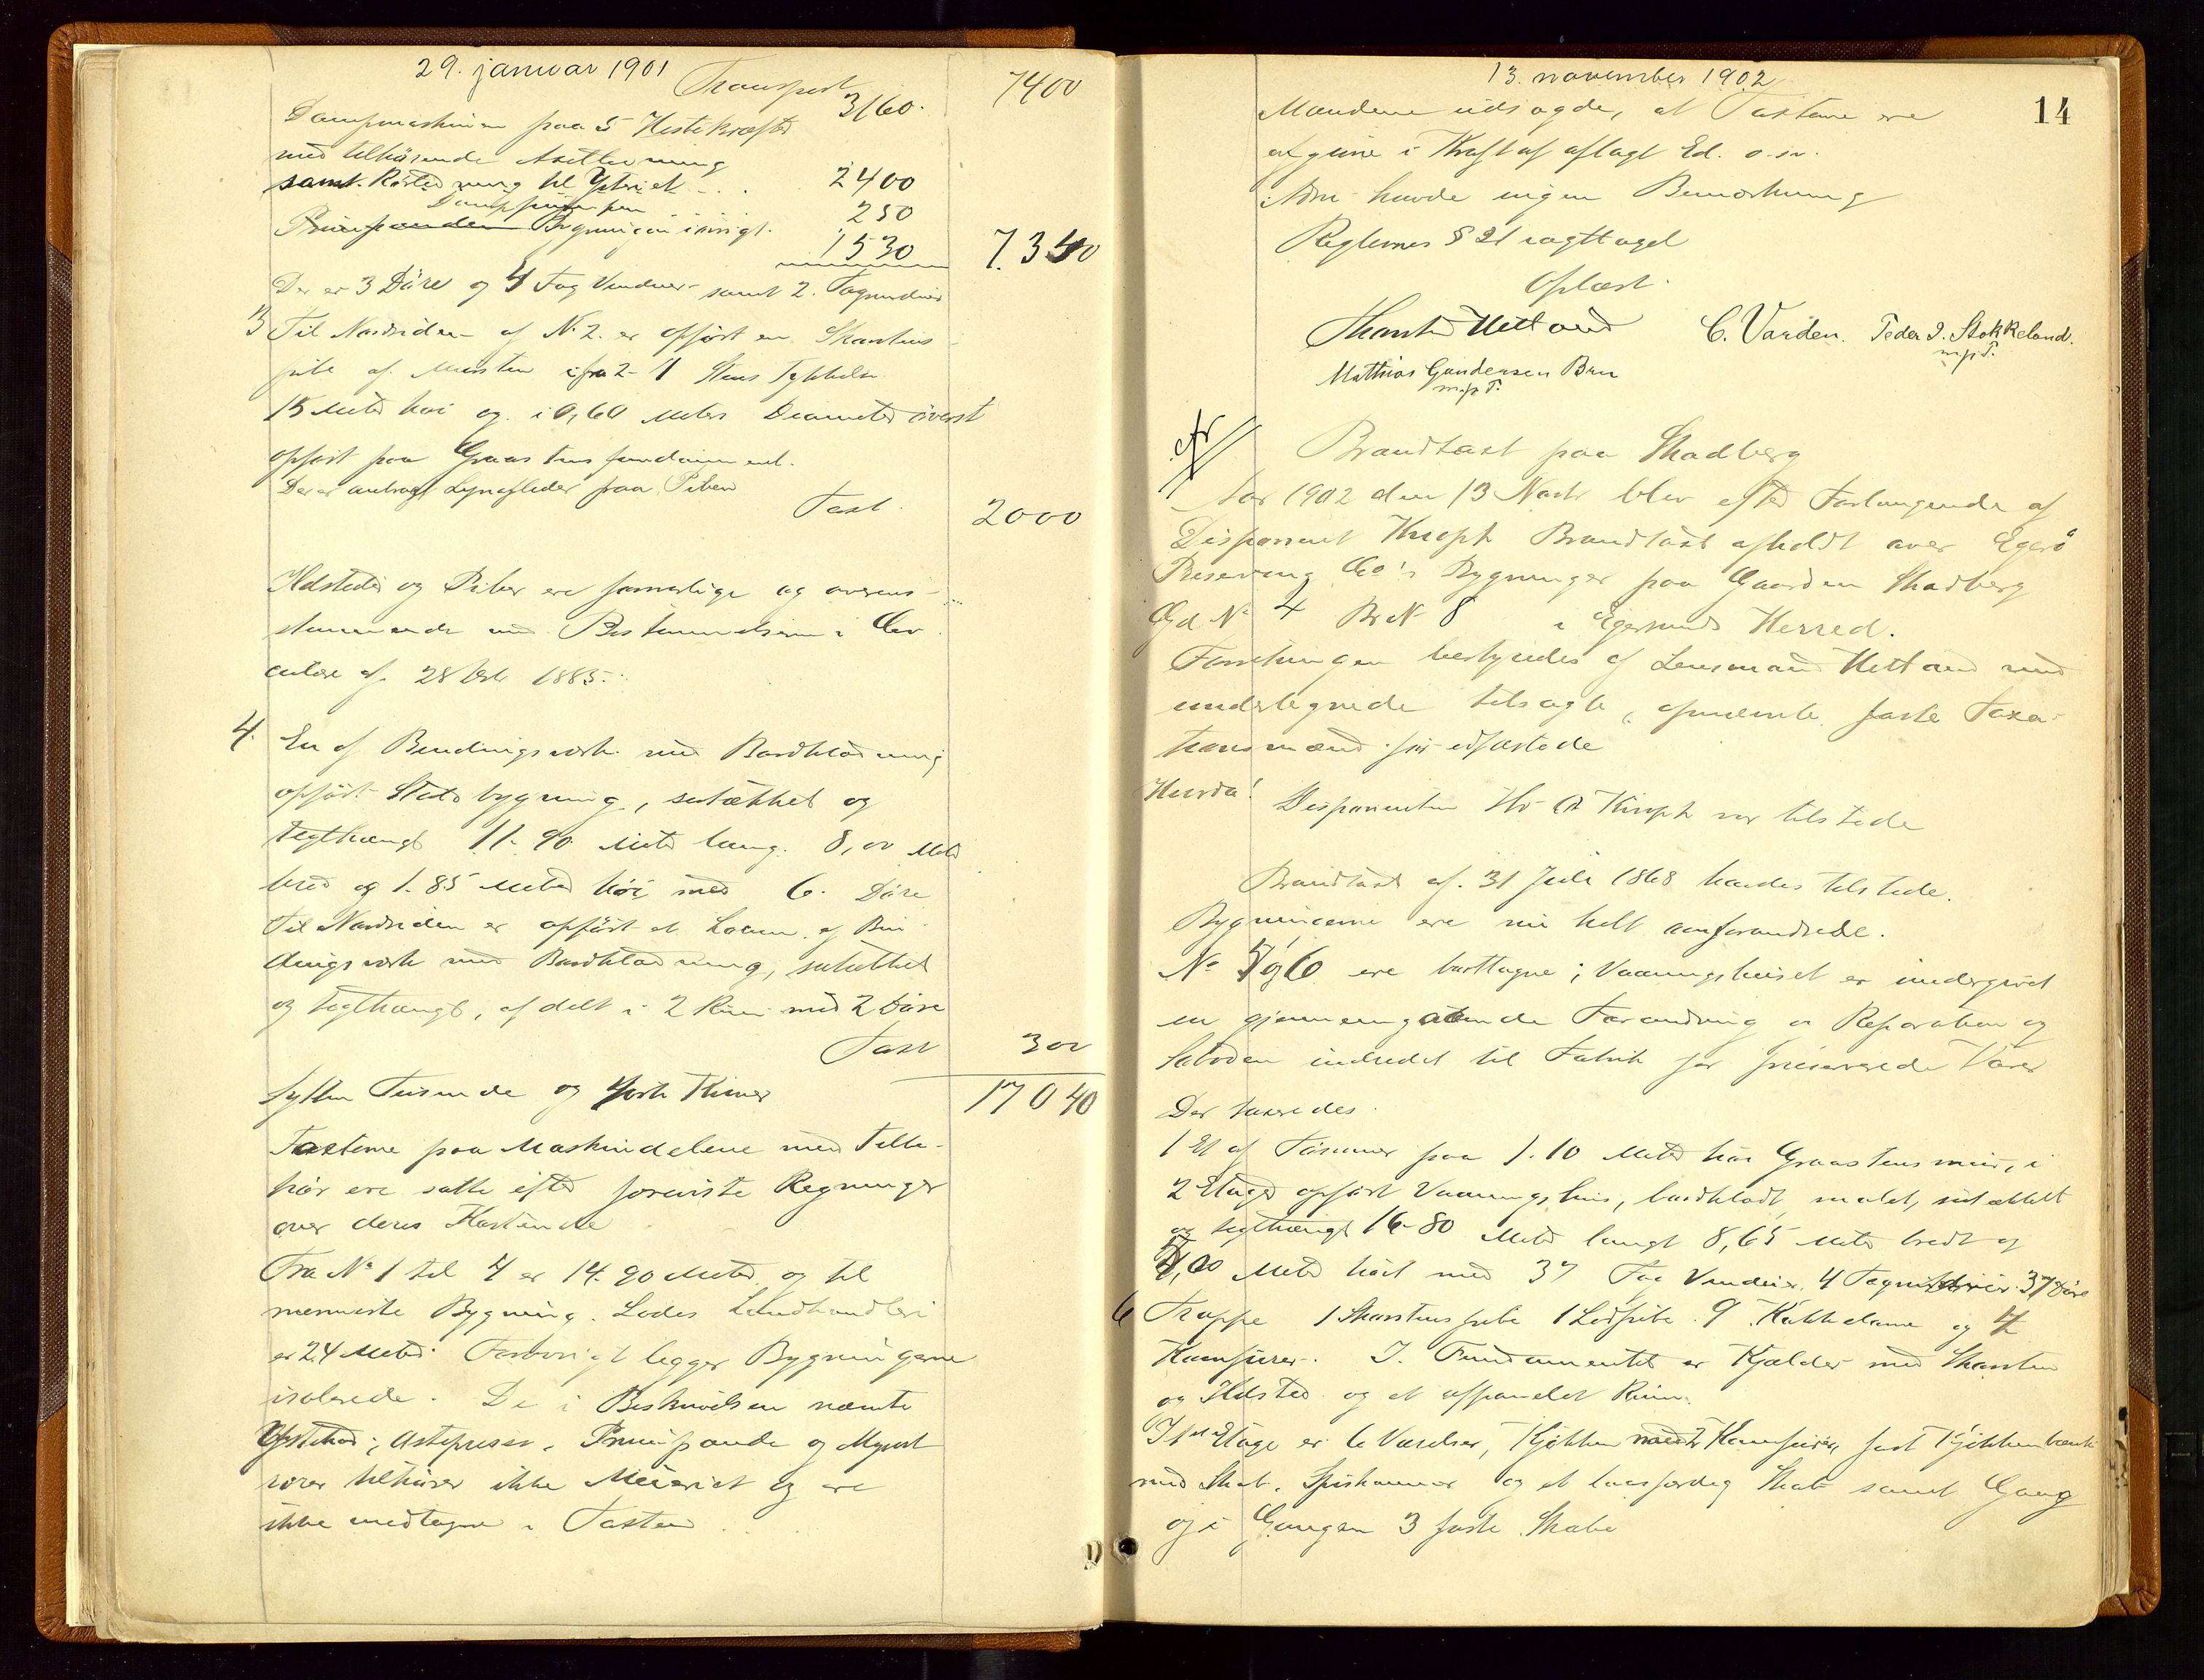 29. januar 1901
Transport 3160. 7400
Dampmaskinen paa 5 Hestekræfter
med tilhörende Axelledning
samt. Rörledning til Ysteriet - . . 2400
Damppumpen 250
Primpanden Bygningen iövrigt. 1530 7.340
Der er 3 Döre og 4 Fag Vinduer samt 2. Tagvinduer
3 Til Nordsiden af No 2. er opfört en Skorstens
pibe af Mursten ifra 2-1 Stens Tykkelse
15 Meter höi og i 0,60 Meters Diameter överst
opfört paa Graastensfundament.
Der er anbragt Lynafleder paa Piben
Taxt. 2000
Ildsteder og Piber ere forsvarlige og overens-
stemmende med Bestemmelserne i Cir
culære af 28 1885.
4. En af Bindingsværk med Bordklædning
opfört Stald bygning, sutækket og
teglhængt 11.90 Meter lang. 8,00 Meter
bred og 1.85 Meter höi med 6. Döre
Til Nordsiden er opfört et Locum af Bin-
dingsværk med Bordklædning, sutækket
og teglhængt, afdelt i 2 Rum med 2 Döre
Taxt 300
Sytten Tusinde og förti Kroner 17040
Taxterne paa Maskindelene med Tilbe-
hör ere satte efter foreviste Regninger
over deres Kostende
Fra No 1 til 4 er 14.90 Meter og til
nærmeste Bygning. Lodes Landhandleri
er 24 Meter. Forövrigt ligger Bygningerne
isolerede. De i Beskrivelsen nævnte
Ystekar, Ostepresser, Primpande og Mysost
rörer tilhörer ikke Meieriet og ere
ikke medtagne i Taxten
13. november 1902
14
Mændene udsagde, at Taxterne ere
afgivne i Kraft af aflagt Ed. o.s.v.
Ingen havde nogen Bemærkning
Reglernes § 21 iagttaget
Oplæst.
Hetland C. Varden. Peder I. Stokkeland.
m.p.P.
Mathias Gundersen Bru
m.p.P.
Brandtaxt paa Skadberg
Aar 1902 den 13 Novbr blev efter Forlangende af
Disponent Knoph Brandtaxt afholdt over Egerö
Preserving Co's Bygninger paa Gaarden Skadberg
Gd No 4 Br N 8 i Egersunds Herred.
Forretningen bestyredes af Lensmand Hetland med
undertegnede tilsagte, opnævnte faste Taxa-
tionsmænd för edfæstede
Hvorda! Disponenten Hr A Knoph var tilstede
Brandtaxt af. 31 Juli 1868 havdes tilstede.
Bygningerne ere nu helt omforandrede.
No 5 og 6 ere borttagne; Vaaningshuset er undergivet
en gjennemgaaende Forandring og Reparation og
Söboden indredet til Fabrik for preserverede Varer
Der taxeredes.
1 Et af Tömmer paa 1.10 Meter höi Graastensmur, i
2 Etager opfört Vaaningshus, bordklædt, malet, sutækket
og teglhængt 16.80 Meter langt 8,65 Meter bredt og
Meter höit med 37 Fag Vinduer. 4 Tagvinduer. 37 Döre
6 Trappe 1 Skorstenspibe 1 Lodpibe 9 Kakkelovne og 4
Komfurer. I. Fundamentet er Kjælder med Skorsten
og Ildsted og et afpanelet Rum.
I 1ste Etage er 6 Værelser, Kjökken med 2 Komfurer, fast Kjökkenbænk
med Skab. Spiskammer og et laasfærdig Skab samt Gang
og i Gangen 3 faste Skabe